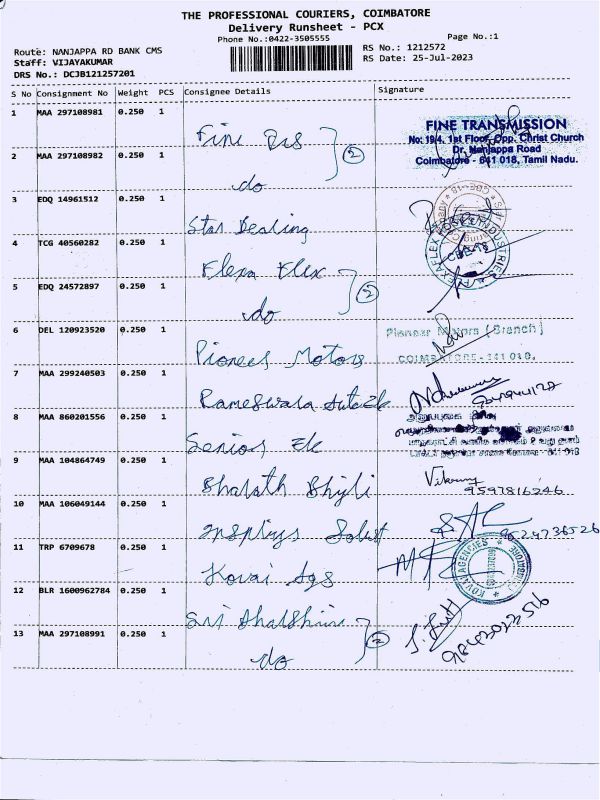 THE PROFESSIONAL COURIERS, COIMBATORE
Delivery Runsheet - PCX
Phone No.:0422-3505555
Page No.:1
Route: NANJAPPA RD BANK CMS
RS No.: 1212572
Staff: VIJAYAKUMAR
RS Date: 25-Jul-2023
DRS No.: DCJB121257201
S No Consignment No Weight PCS Consignee Details Signature
1 MAA 297108981 0.250 1
Fine
FINE TRANSMISSION
No: 19/4, 1st Floor, Opp. Christ Church
Dr. Nanjappa Road
Coimbatore - 641 018, Tamil Nadu.
2 MAA 297108982 0.250 1
do
2
3 EDQ 14961512 0.250 1
Star Dealing
4 TCG 40560282 0.250 1
Flexa Flex
5 EDQ 24572897 0.250 1
do
2
6 DEL 120923520 0.250 1
Pioneer Motors
Pioneer Motors (Branch)
COIMBATORE - 641 018.
7 MAA 299240503 0.250 1
Rameswara
8 MAA 860201556 0.250 1
Senior
9 MAA 104864749 0.250 1
Bharath Bhijli
9597816246
10 MAA 106049144 0.250 1
9524736526
11 TRP 6709678 0.250 1
Kovai Ags
KOVAI AGENCIES
12 BLR 1600962784 0.250 1
Sri
13 MAA 297108991 0.250 1
do
2